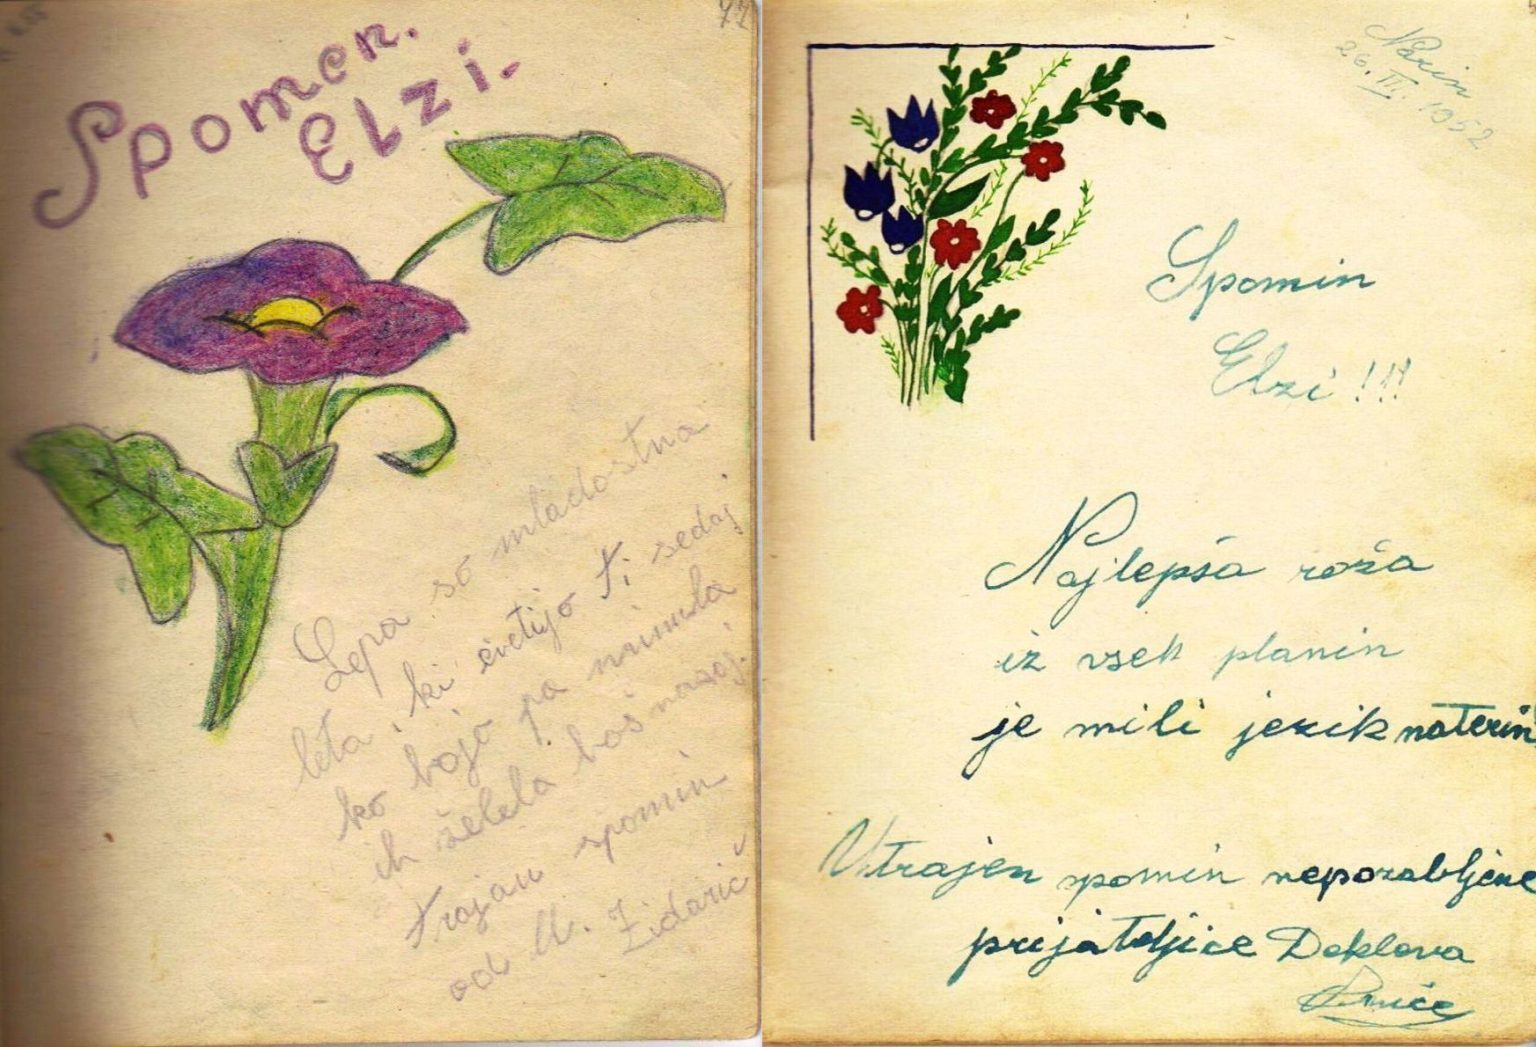 Spomen.
Elzi.
Lepa so mladostna
leta, ki cvetijo ti sedaj
ko bojo pa minula
ih želela boš nazaj.
Trajan spomin
od M. Zidarič
Narin
26. III. 1952
Spomin
Elzi!!!
Najlepša roža
iz vseh planin
je mili jezik materin
V trajen spomin nepozabljene
prijateljice Doklova